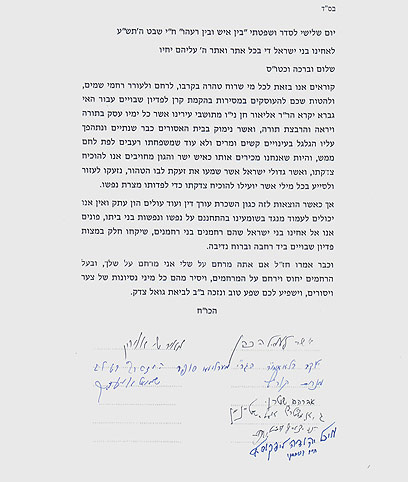 בס"ד
יום שלישי לסדר ושפטתי "בין איש ובין רעהו" ח"י שבט ה'תשע"ע
לאחינו בני ישראל די בכל אתר ואתר ה' עליהם יחיו
שלום וברכה וכטו"ס
קוראים אנו בזאת לכל מי שרוח טהרה בקרבו, לרחם ולעורר רחמי שמים,
ולהטות שכם להעוסקים במסירות בהקמת קרן לפדיון שבויים עבור האי
גברא יקרא הר"ר אליאור חן ני"ו מתושבי עירינו אשר כל ימיו עסק בתורה
ויראה והרבצת תורה, ואשר נימוק בבית האסורים כבר שנתיים ונתהפך
עליו הגלגל בעינויים קשים ומרים ולא עוד שמשפחתו רעבים לפת לחם
ממש, והיות שאנחנו מכירים אותו כאיש ישר והגון מחויבים אנו להוכיח
צדקתו, וכאשר גדולי ישראל אשר שמעו את זעקת לבו הטהור, נזעקו לעזור
ולסייע בכל מילי אשר יועילו להוכיח צדקתו כדי לפדותו מצרת נפשו.
אך כאשר הוצאות לזה כגון השכרת עורך דין ועוד עולים הון עתק ואין אנו
יכולים לעמוד מנגד בשומעינו בהתחננם על נפשו ונפשות בני ביתו, פונים
אנו אל אחינו בני ישראל שהם רחמנים בני רחמנים, שיקחו חלק במצות
פדיון שבויים ביד רחבה וברוח נדיבה.
וכבר אמרו חז"ל אם אתה מרחם על שלי אני מרחם על שלך, ובעל
הרחמים יחוס וירחם על המרחמים, ויסיר מהם כל מיני נסיונות של צער
ויסורים, וישפיע לכם שפע טוב ונזכה ב"ב לביאת גואל צדק.
הכו"ח